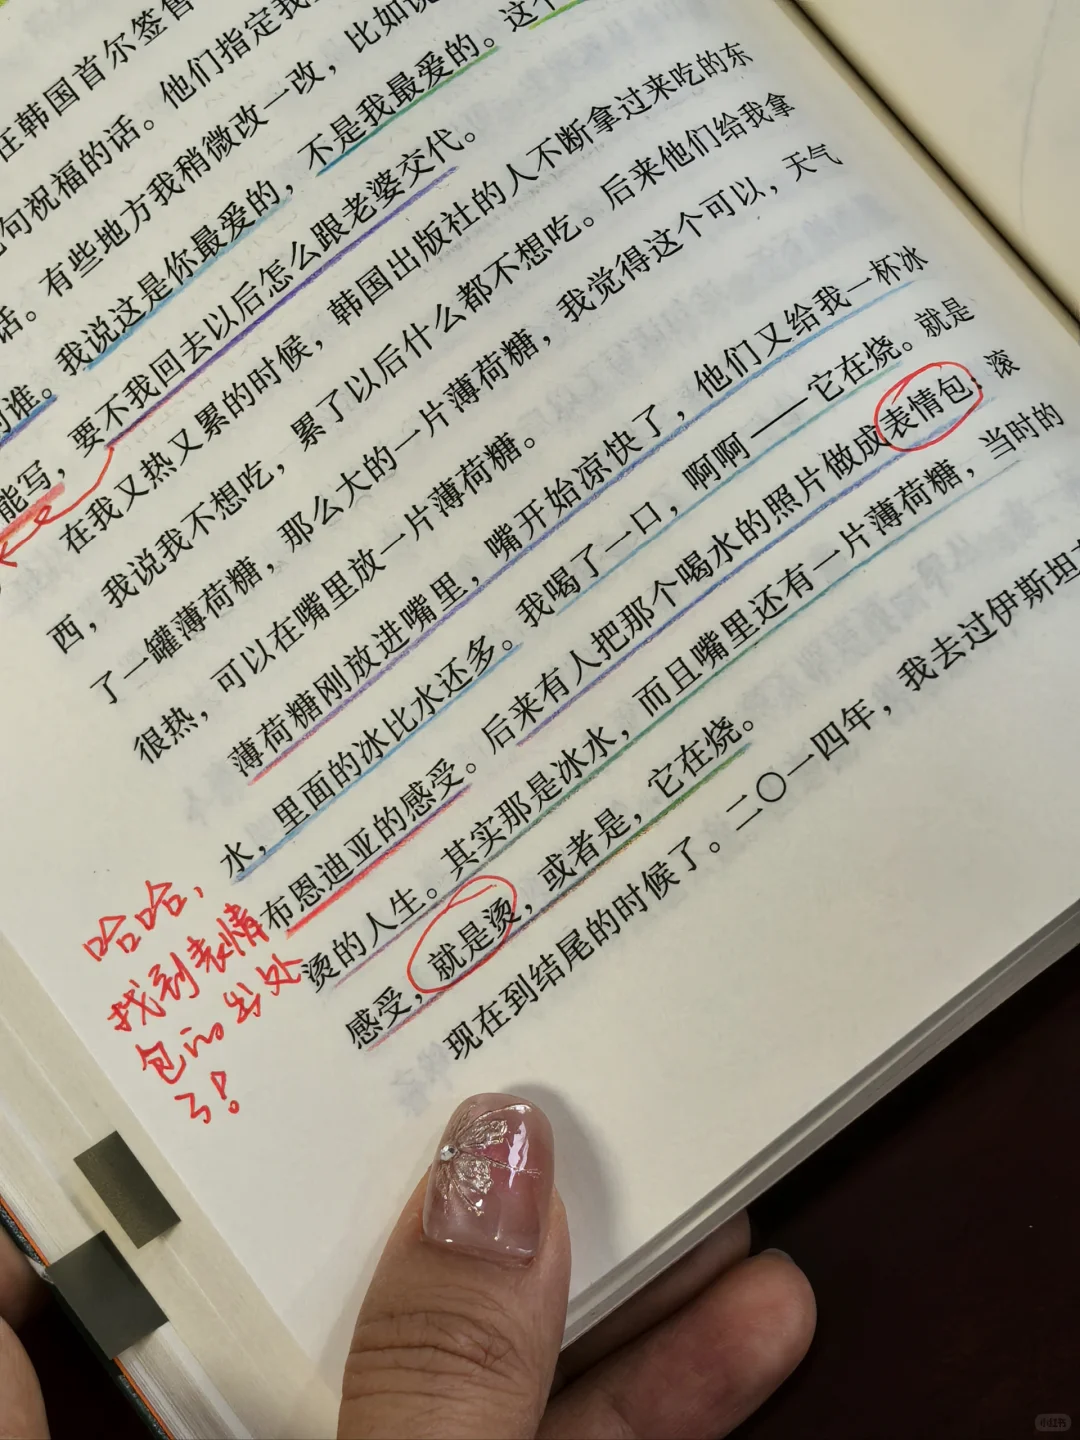 在韩国首尔签售
句祝福的话。他们指定我
话。有些地方我稍微改一改，比如说
的谁。我说这是你最爱的，不是我最爱的。这个
能写，要不我回去以后怎么跟老婆交代。
在我又热又累的时候，韩国出版社的人不断拿过来吃的东
西，我说我不想吃，累了以后什么都不想吃。后来他们给我拿
了一罐薄荷糖，那么大的一片薄荷糖，我觉得这个可以，天气
很热，可以在嘴里放一片薄荷糖。
薄荷糖刚放进嘴里，嘴开始凉快了，他们又给我一杯冰
水，里面的冰比水还多。我喝了一口，啊啊——它在烧。就是
布恩迪亚的感受。后来有人把那个喝水的照片做成表情包：滚
烫的人生。其实那是冰水，而且嘴里还有一片薄荷糖，当时的
感受，就是烫，或者是，它在烧。
现在到结尾的时候了。二〇一四年，我去过伊斯坦
哈哈，
找到表情
包的出处
了！
小红书